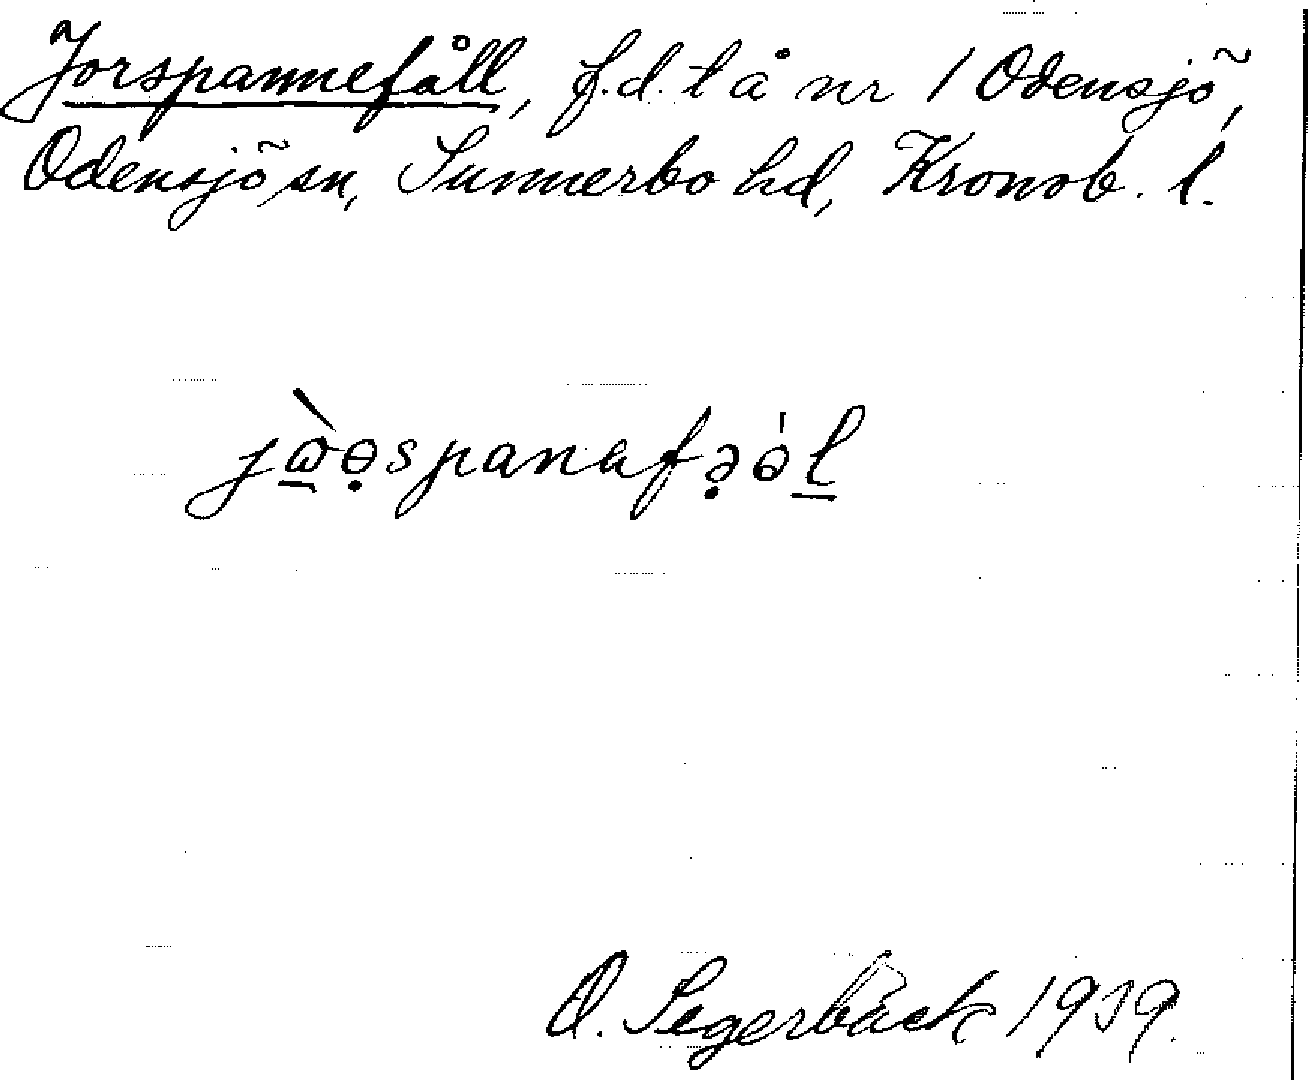 Jorspannefåll, f.d. t å nr 1 Odensjö,
Odensjö sn, Sunnerbo hd, Kronob. l.
O. Segerbäck 1939.